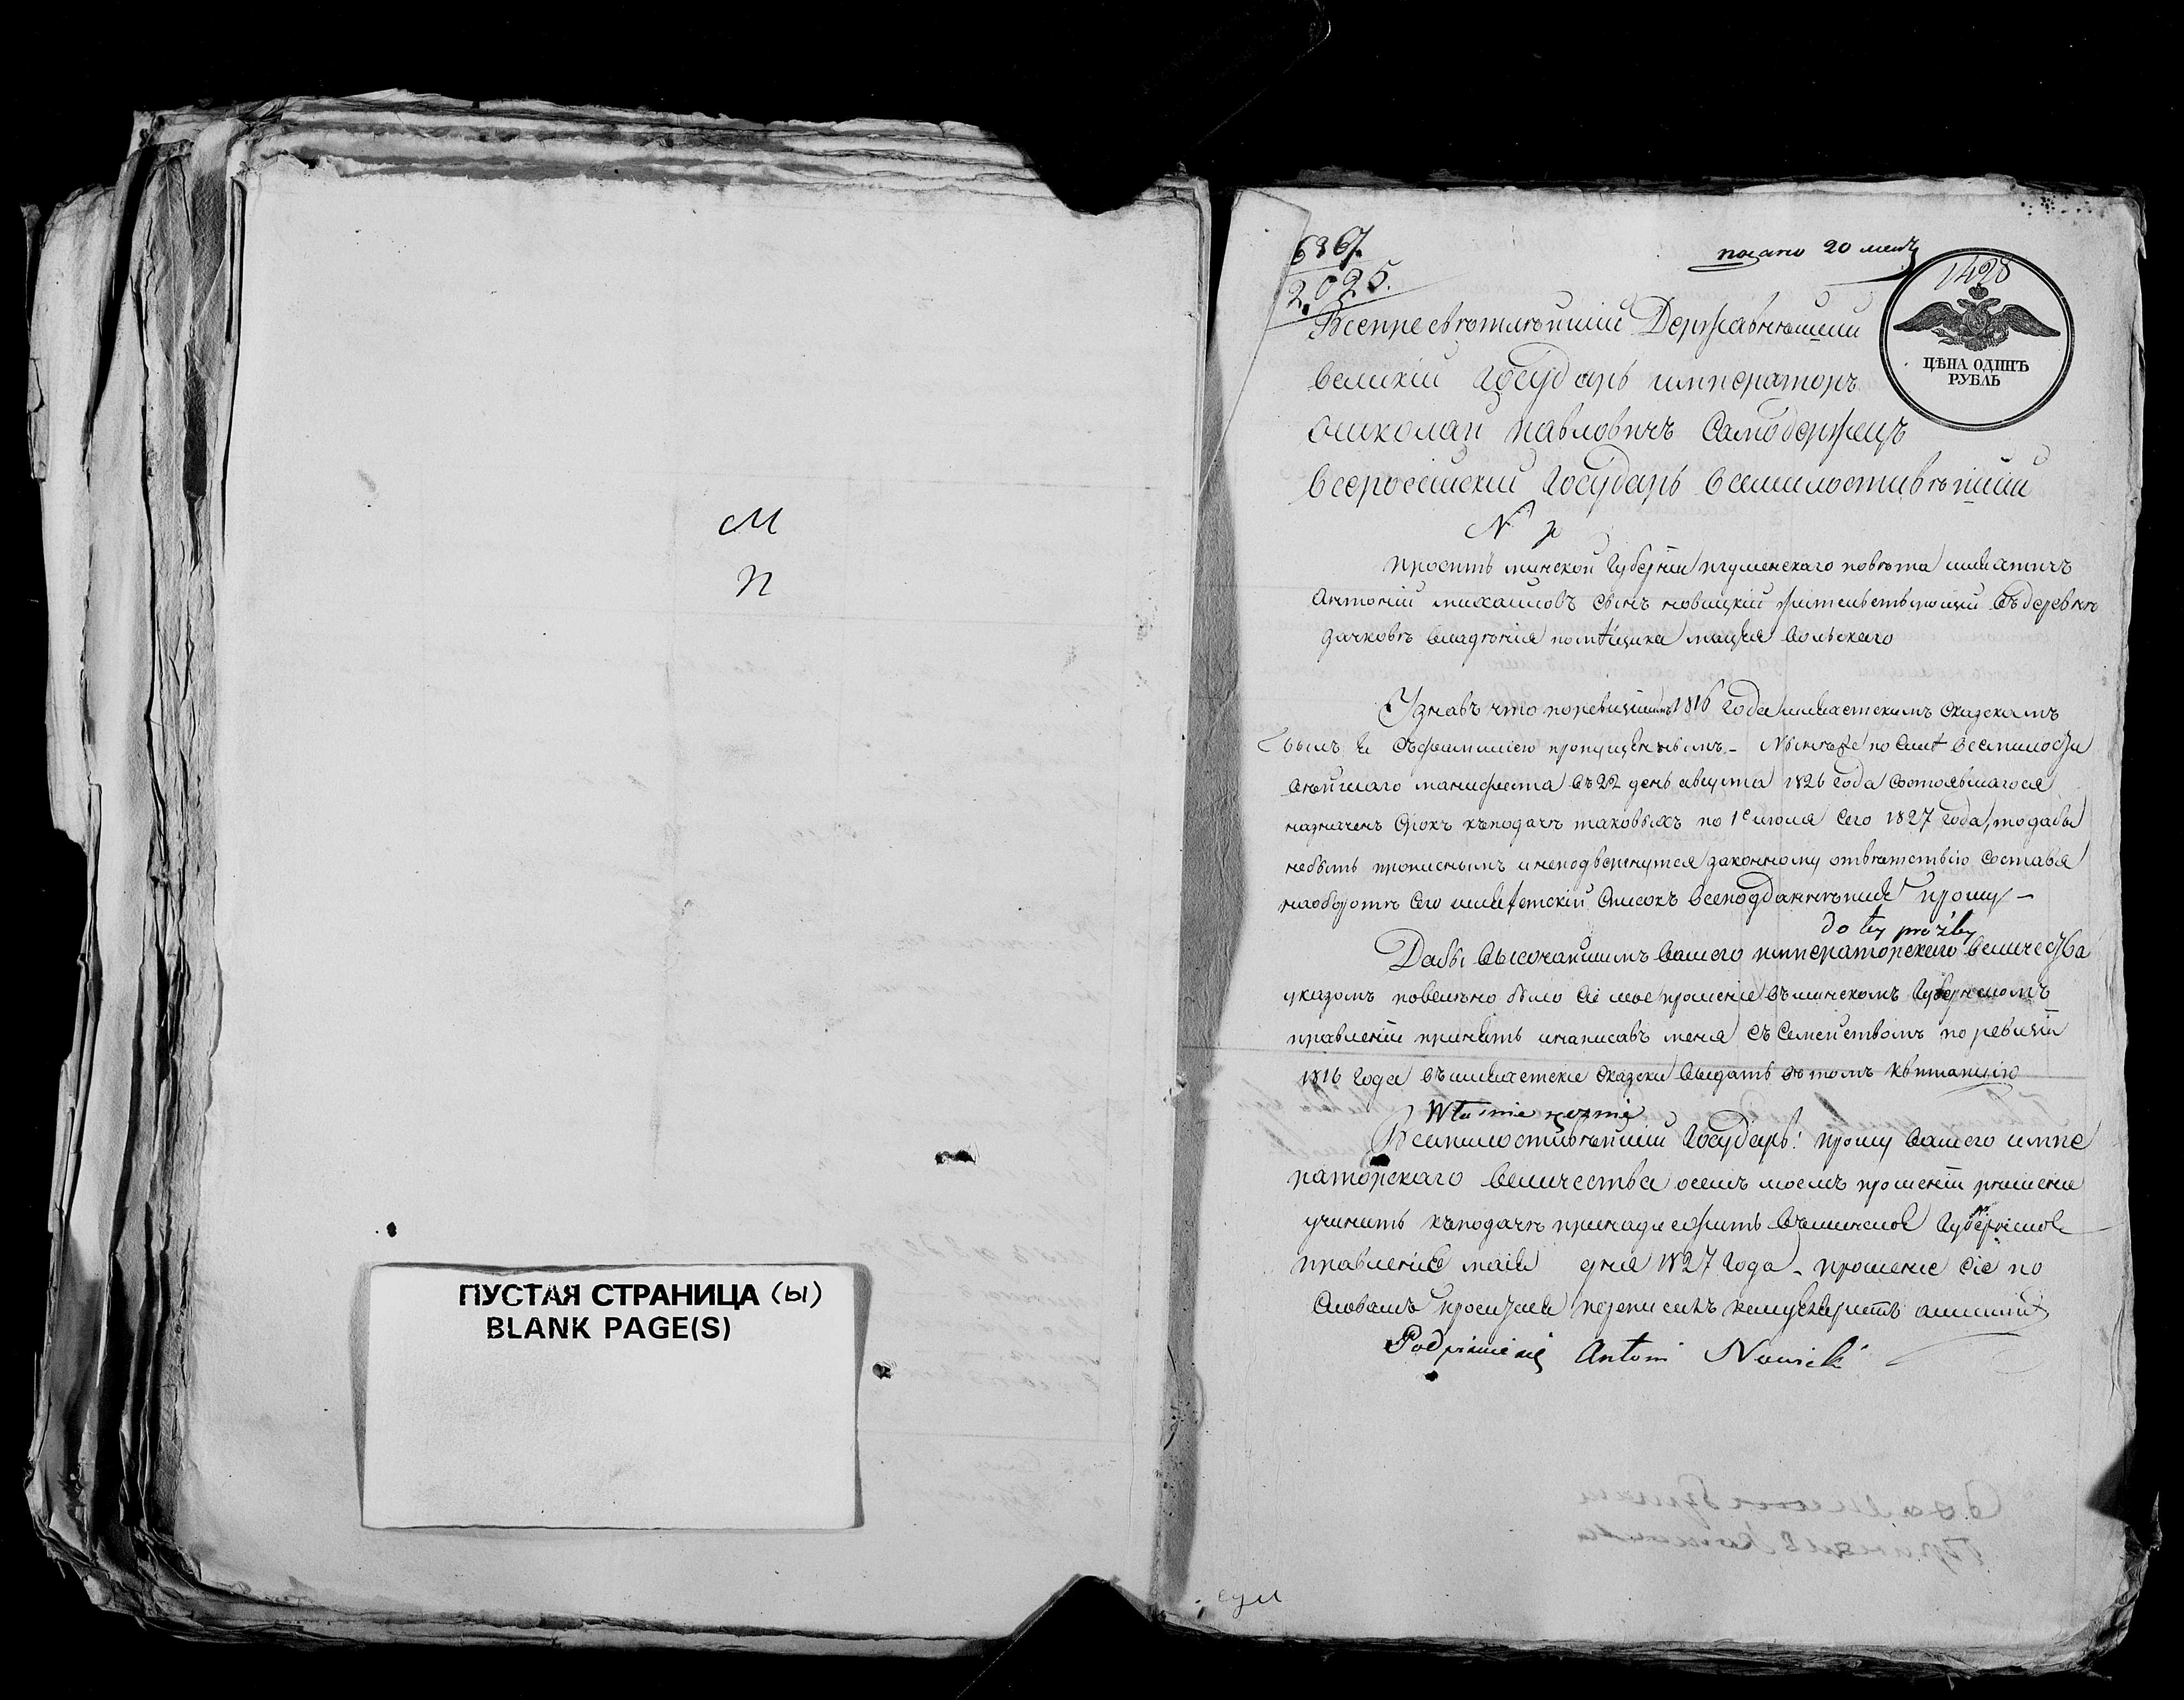 М
П
ПУСТАЯ СТРАНИЦА (ы)
BLANK PAGE(S)
6867.
2025.
подано 20 маія
1428
ЦѢНА ОДИНЪ
РУБЛЬ
Всепресвѣтлѣйшій Державнѣйшій
великій Государь императоръ
Николай павловичъ Самодержецъ
всеросійскій Государь всемилостивѣйшій
проситъ минской Губерніи игуменскаго повѣта шляхтичъ
Антоній михайловъ сынъ новицкій жительствующій въ деревнѣ
дачковѣ владѣнія помѣщика мацея вольскаго
Узнавъ что по ревизіи 1816 года шляхетскимъ сказкамъ
былъ я съ фамиліею пропущеннымъ. Нынѣже по силѣ всемилости
вѣйшаго манифеста въ 22 день августа 1826 года состоявшагося
назначенъ срокъ къ подачѣ таковыхъ по 1е июля сего 1827 года, то дабы
небыть прописнымъ и неподвергнутся законному отвѣтствію составя
наоборотѣ сего шляхетскій списокъ всеподданнѣйше прошу —
do tey proźby
Дабы высочайшимъ вашего императорскаго величества
указомъ повелѣно было сіе мое прошеніе въ минскомъ Губернскомъ
правленіи принять и написавъ меня съ семействомъ по ревизіи
1816 года въ шляхетскіе сказки выдать в томъ квитанцію
Własnie ręcznie
Всемилостивѣйшій Государь! прошу вашего импе
раторскаго величества осемъ моемъ прошеніи решеніе
учинить къ подачѣ принадлежитъ въ минское Губернское
правленіе маія дня 1827 года. прошеніе сіе по
словамъ просителя переписалъ
Antoni Nowicki